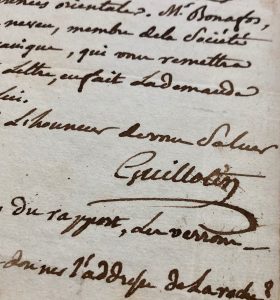 orientales. Mr. Bonafos,
neveu, membre de la Société
qui vous remettra
Lettre, en fait la demande
lui.
L'honneur de vous Saluer
Guillotin
du rapport, du
donner l'addresse de la